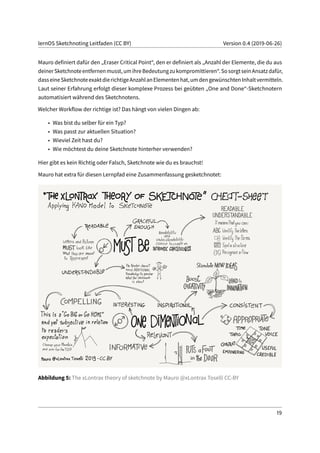 lernOS Sketchnoting Leitfaden (CC BY) Version 0.4 (2019-06-26)
Mauro definiert dafür den „Eraser Critical Point“, den er definiert als „Anzahl der Elemente, die du aus
deiner Sketchnote entfernen musst, um ihre Bedeutung zu kompromittieren“. So sorgt sein Ansatz dafür,
dass eine Sketchnote exakt die richtige Anzahl an Elementen hat, um den gewünschten Inhalt vermitteln.
Laut seiner Erfahrung erfolgt dieser komplexe Prozess bei geübten „One and Done“-Sketchnotern
automatisiert während des Sketchnotens.
Welcher Workflow der richtige ist? Das hängt von vielen Dingen ab:
• Was bist du selber für ein Typ?
• Was passt zur aktuellen Situation?
• Wieviel Zeit hast du?
• Wie möchtest du deine Sketchnote hinterher verwenden?
Hier gibt es kein Richtig oder Falsch, Sketchnote wie du es brauchst!
Mauro hat extra für diesen Leitpfad eine Zusammenfassung gesketchnotet:
"THE XLONTRAX THEORY OF SKETCHNOTE" CHEAT-SHEET
Applying KANO Model to SKETCHNOTE
READABLE
GRACEFUL
ENOUGH
READABLE
UNDERSTANDABLE
It means that you can:
ABC Identify the Letters
Identify the Forms
Recognize a Flow
Letters and Pictures
MUST look like
what they are meant
to Represent
MUST BE
Readability
and
Understandability
UNDERSTANDABLE
The Reader doesn't
need ADDITIONAL
Knowledge to perceive
what the Sketchnote
is about
Stimulate NEW IDEAS
Boost
CREATIVITY
LEADS to
INNOVATION
COMPELLING
INTERESTING
INSPIRATIONAL
CONSISTENT
This is a "Go BIG or Go HOME"
and yet subjective in relation
to readers
expectation
ONE DIMENTIONAL
APPROPRIATE
TIME
TOPIC
TONE
VOICE
RELEVANT
INFORMATIVE
PUTS a FooT
in the DOOR
CONVEY
EMPOWERING
USEFUL
CREDIBLE
Mauro @xLontrax Toselli 2019 - CC-BY
Abbildung 5: The xLontrax theory of sketchnote by Mauro (@xLontrax Toselli) CC-BY
19